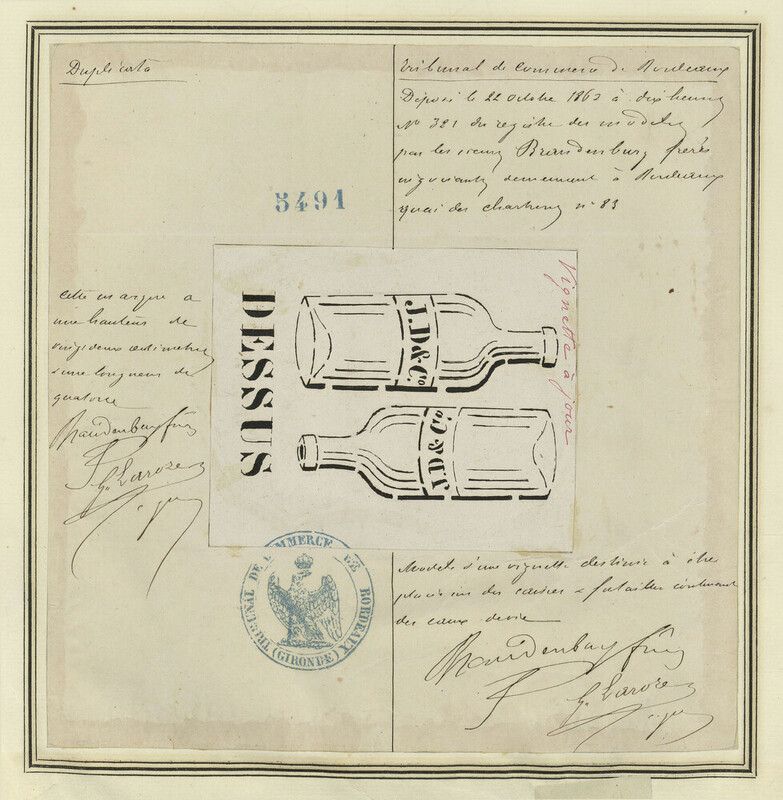 Duplicata
Tribunal de Commerce de Bordeaux
Déposé le 22 octobre 1863 à dix heures
N° 321 du registre des modèles
par les sieurs Brandenburg frères
négociants demeurant à Bordeaux
quai des chartrons n° 83
5491
cette marque a
une hauteur de
vingt deux centimètres
sur une longueur de
quatorze
Brandenburg frères
G. Laroze
DESSUS
J.D & Co
J.D & Co
Vignette à jour
TRIBUNAL DE COMMERCE DE BORDEAUX
(GIRONDE)
Modèle d'une vignette destinée à être
placée sur des caisses & futailles contenant
des eaux de vie
Brandenburg frères
G. Laroze